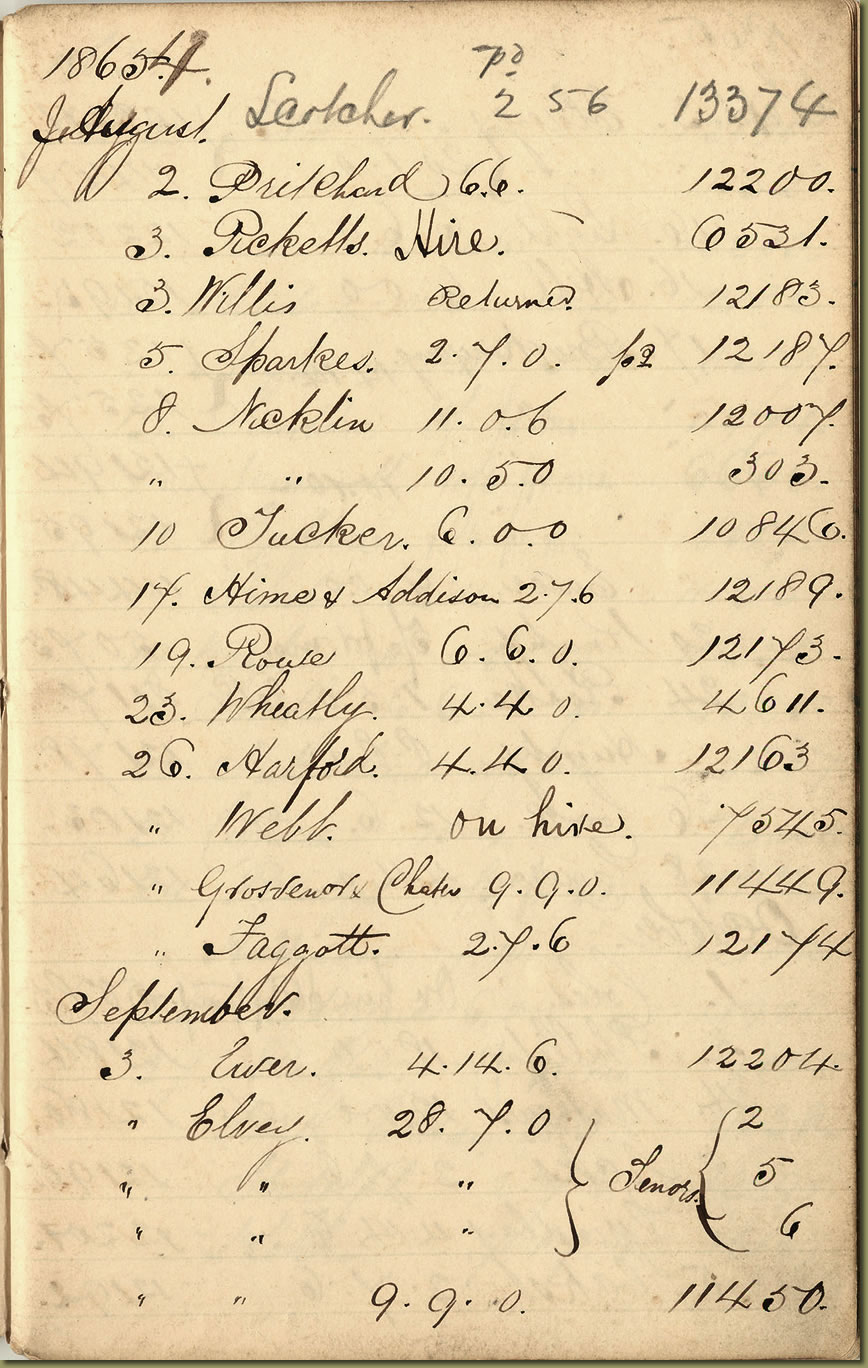 1865
pd
August. Scotcher. 2 5 6 13374
2. Pritchard 6.6. 12200.
3. Picketts. Hire. 6531.
3. Willis Returned 12183.
5. Sparkes. 2. 7. 0. pd 12187.
8. Nicklin 11. 0. 6 12007.
" " 10. 5. 0 303.
10 Tucker. 6. 0. 0 10846.
17. Hime & Addison 2.7.6 12189.
19. Rouse 6. 6. 0. 12173.
23. Wheatly. 4. 4 0. 4611.
26. Harford. 4. 4. 0. 12163
" Webb. on hire. 7545.
" Grosvenor & Chater 9. 9. 0. 11449.
" Faggott. 2. 7. 6 12174
September.
3. Ewer. 4. 14. 6. 12204.
" Elvey. 28. 7. 0 2
" " " Tenors. 5
" " " 6
" " 9. 9. 0. 11450.